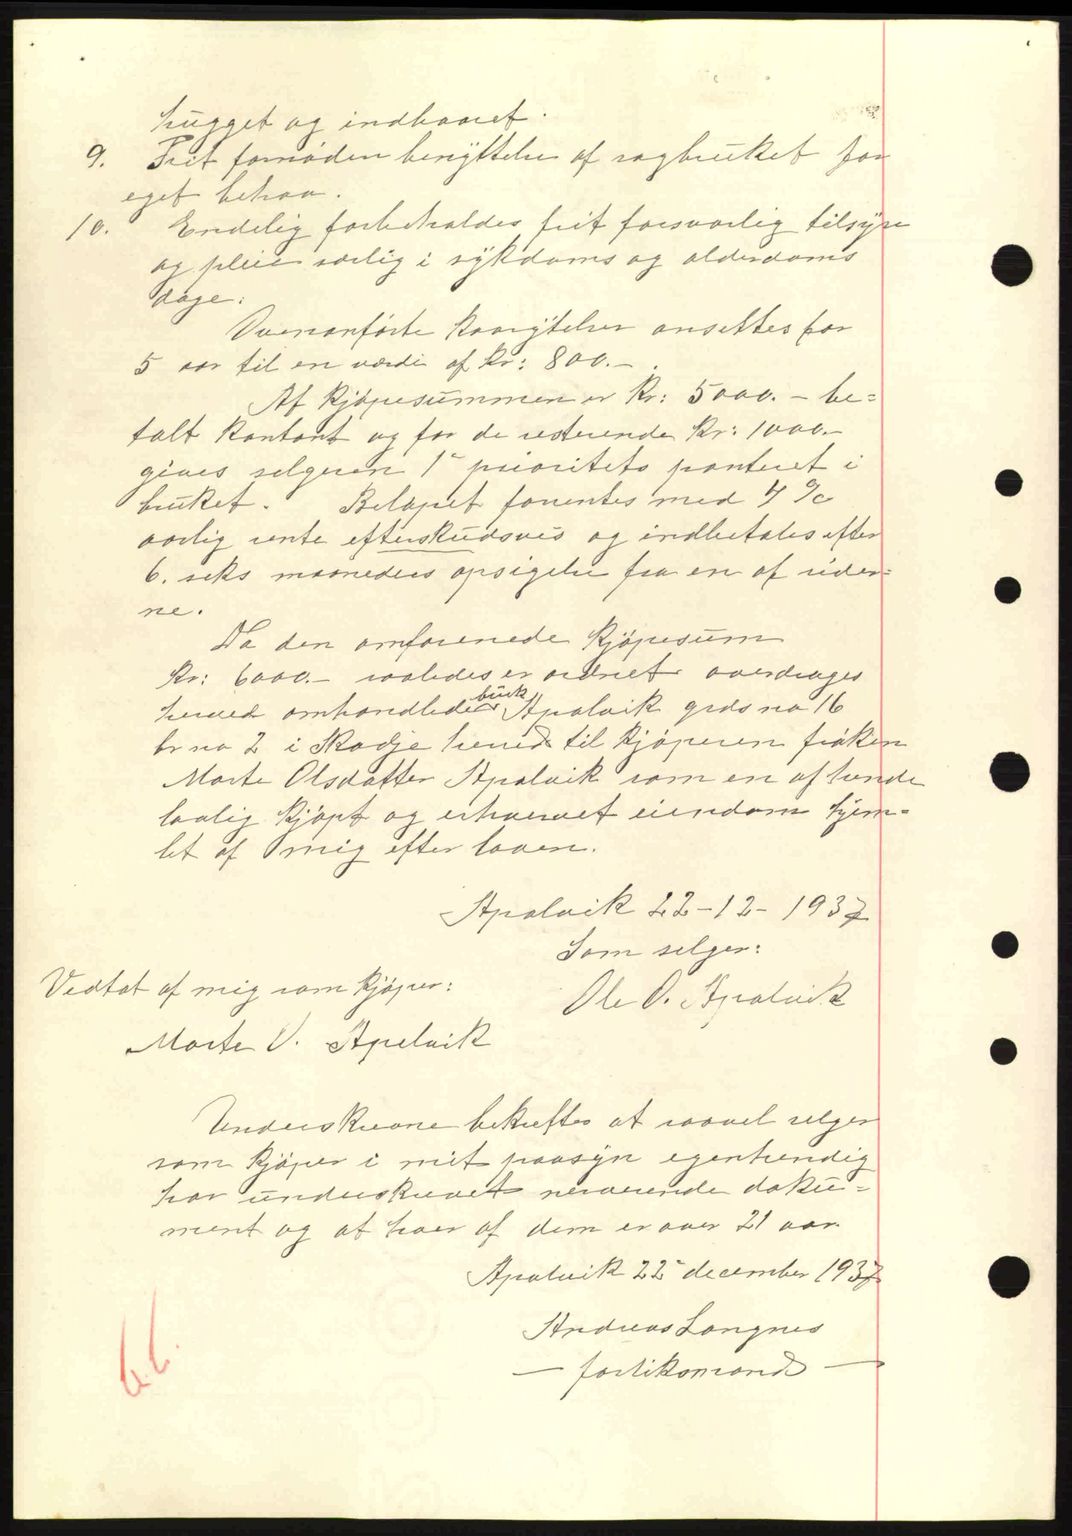 hugget og indbaaret.
9. Frit fornøden benyttelse af sagbruket for
eget behov.
10. Endelig forbeholdes frit forsvarlig tilsyn
og pleie særlig i sykdoms og alderdoms
dage.
Ovenanførte kaarytelser ansettes for
5 aar til en værdi af kr: 800.-.
Af kjøpesummen er kr: 5000.- be=
talt kontant og for de resterende kr: 1000.-
gives selgeren 1ᵉ prioritets panteret i
bruket. Beløpet forrentes med 4 %
aarlig rente efterskudsvis og indbetales efter
6. seks maaneders opsigelse fra en af sider=
ne.
Da den omforenede kjøpesum
kr: 6000.- saaledes er ordnet overdrages
herved omhandlede bruk Apalvik grds no 16
br no 2 i Skodje herred til kjøperen frøken
Marte Olsdatter Apalvik som en af hende
lovlig kjøpt og erhvervet eiendom hjem=
let af mig efter loven.
Apalvik 22-12-1937
Som selger:
Ole O. Apalvik
Vedtat af mig som kjøper:
Marte O. Apelvik
Underskrevne bekrefter at saavel selger
som kjøper i mit paasyn egenhendig
har underskrevet nerverende doku=
ment og at hver af dem er over 21 aar.
Apalvik 22 december 1937
Andreas Langnes
— forliksmand —